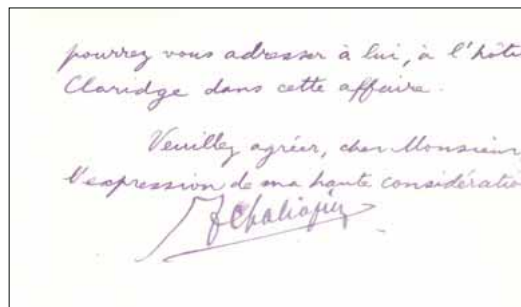 pourrez vous adresser à lui, à l'hôte
Claridge dans cette affaire.
Veuillez agréer, cher Monsieur
l'expression de ma haute considératio
FChaliapin